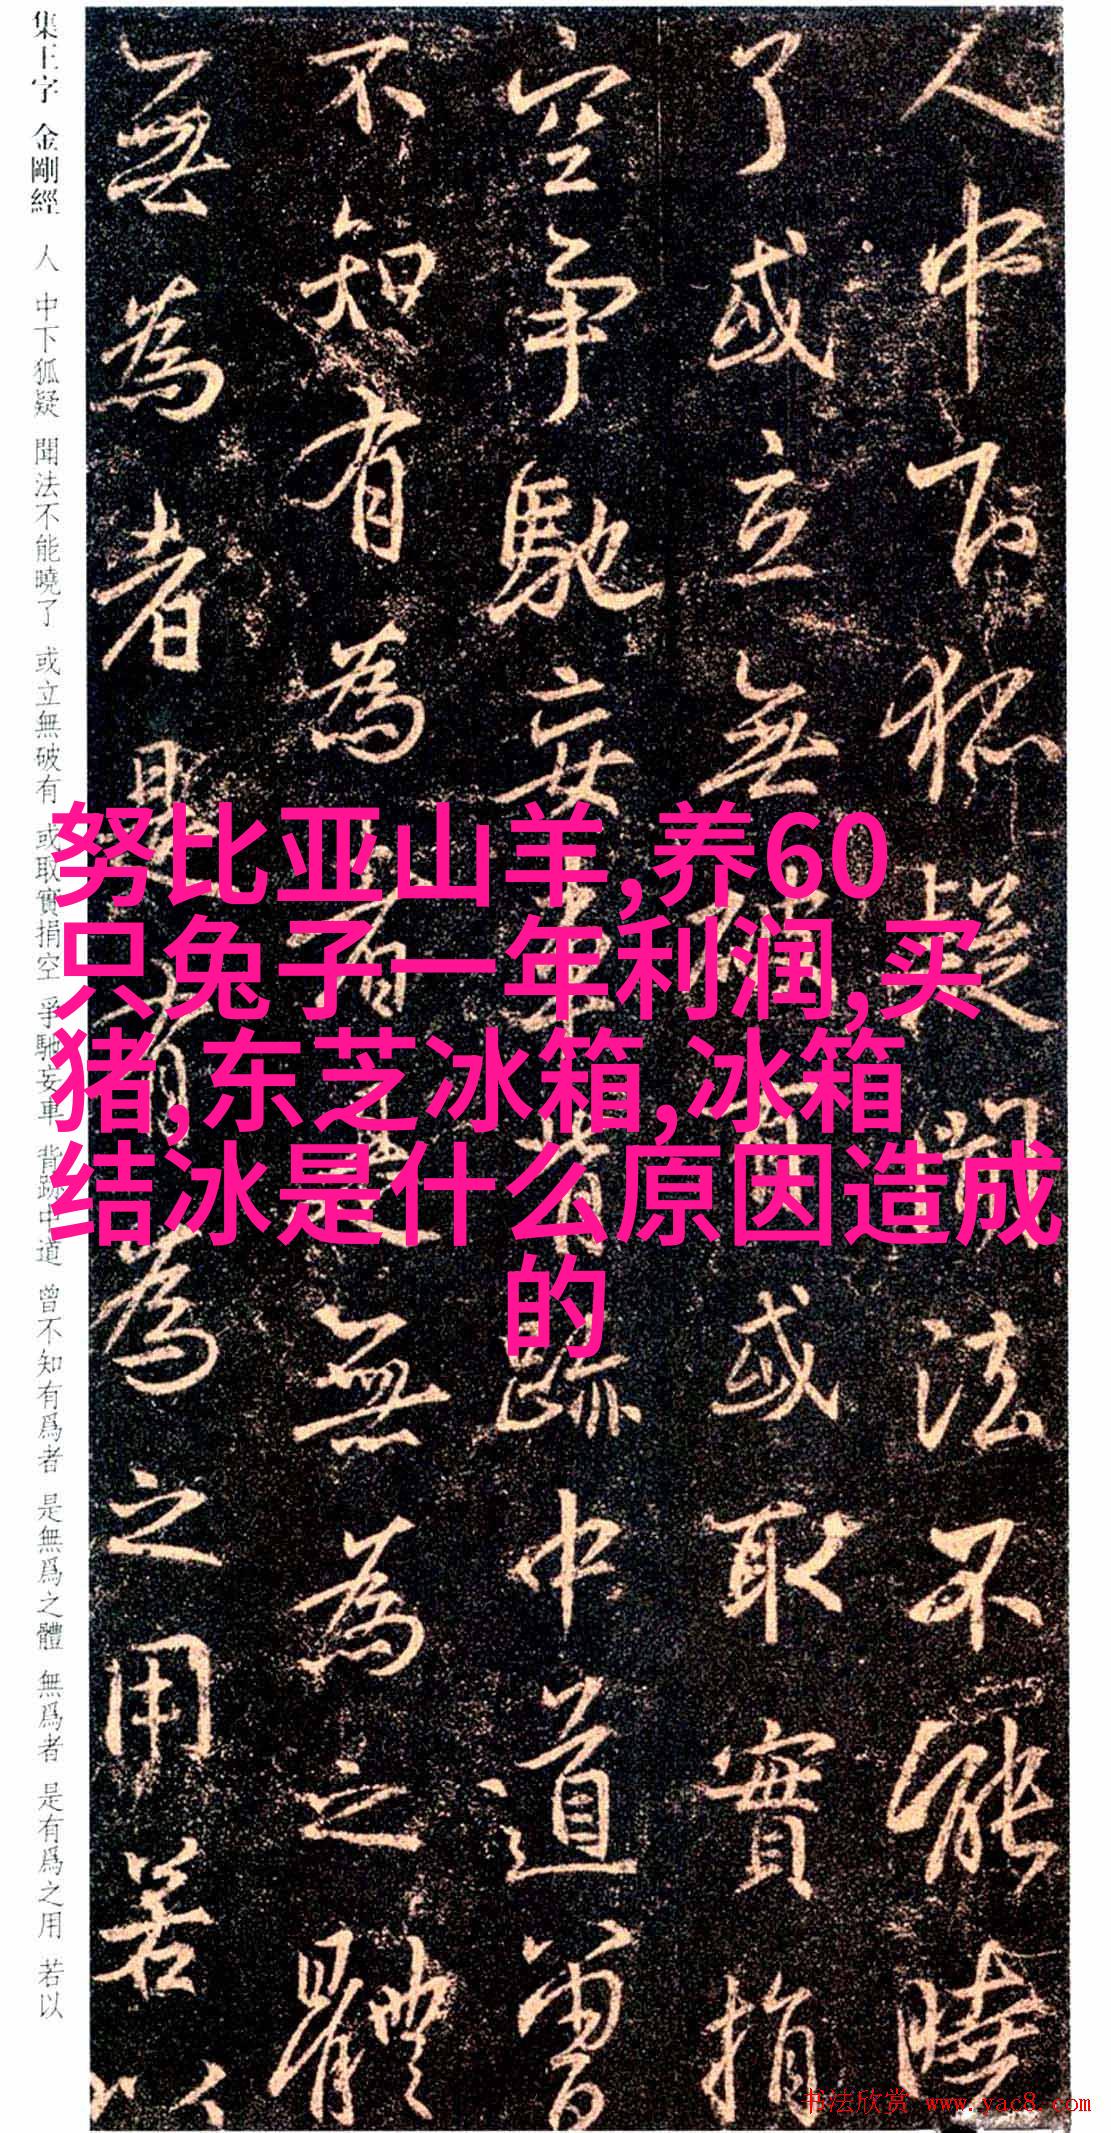 集王字 金剛經 人 中下狐疑 聞法不能曉了 或立無破有 或取實捐空 爭馳妄車 背跡中道 曾不知有爲者 是無爲之體 無爲者 是有爲之用 若以
人中下狐疑聞法不能曉
了或立無破有或取實捐
空爭馳妄車背跡中道曾
不知有為者是無為之體
無為者是有為之用若以
努比亚山羊,养60
只兔子一年利润,买
猪,东芝冰箱,冰箱
结冰是什么原因造成
的
书法欣赏 www.yac8.com